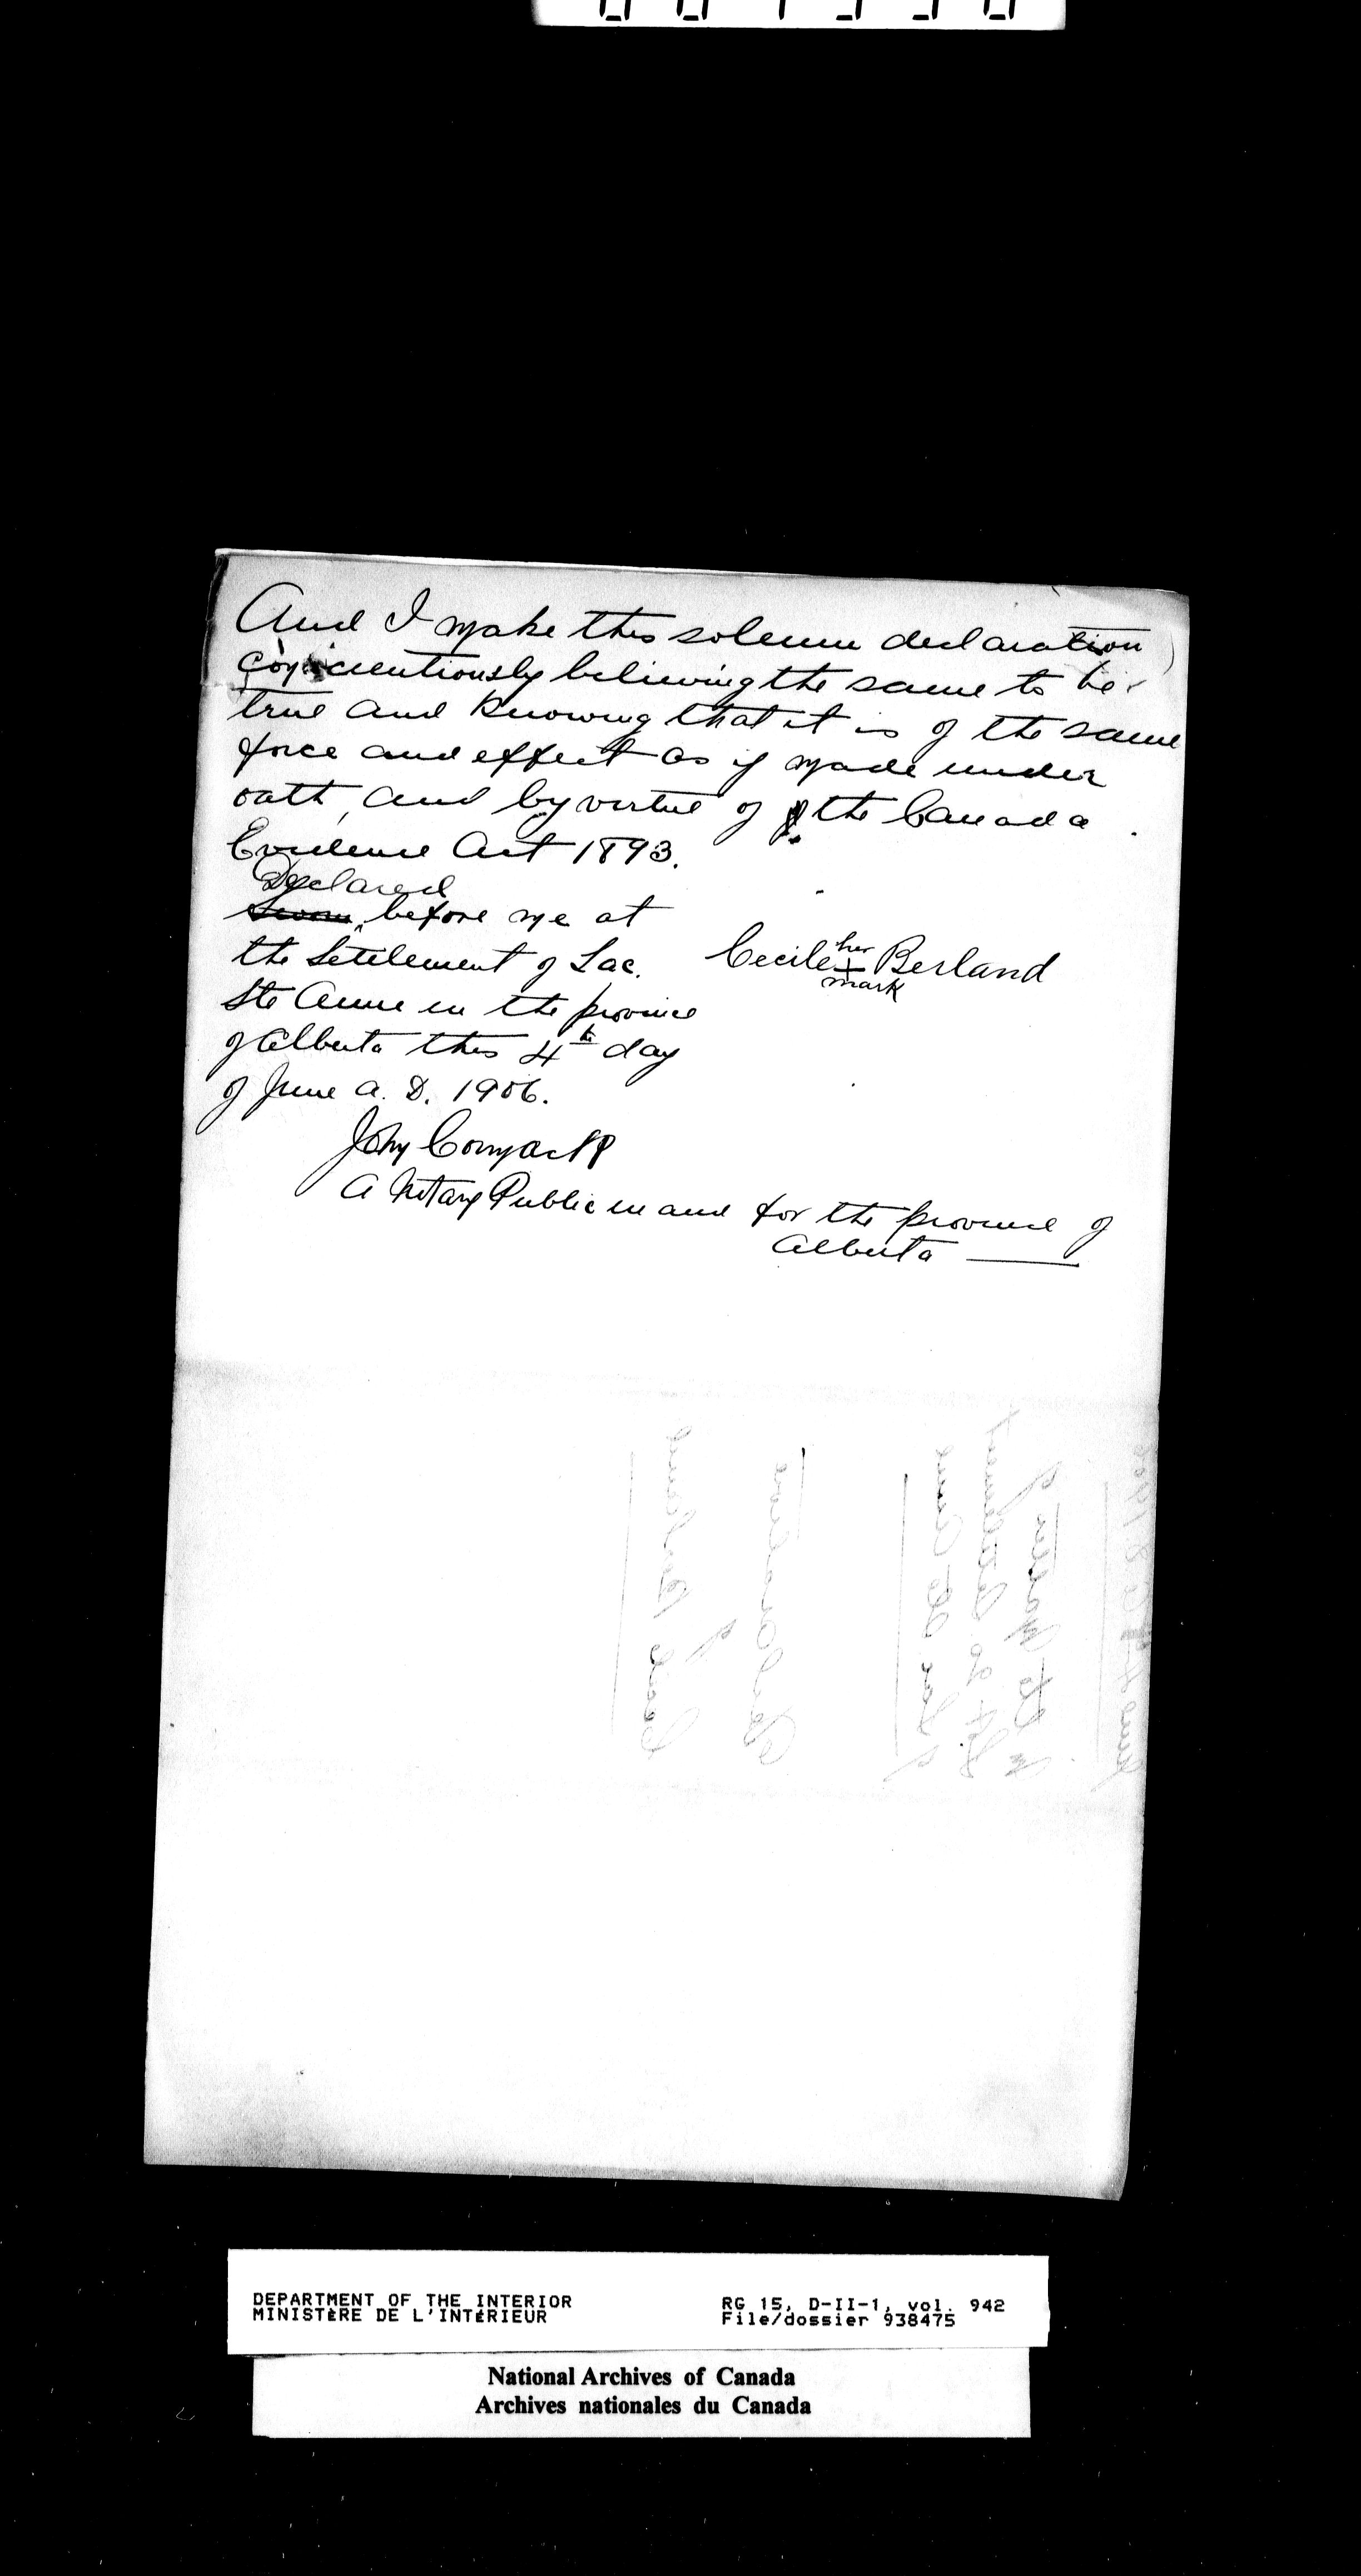 And I make this solemn declaration
conscientiously believing the same to be
true and knowing that it is of the same
force and effect as if made under
oath, and by virtue of the Canada
Evidence Act 1893.
Declared
Sworn before me at
the Settlement of Lac.
Ste Anne in the province
of Alberta this 4th day
of June A. D. 1906.
Cecile her + mark Berland
John
A Notary Public in and for the province of
Alberta
DEPARTMENT OF THE INTERIOR
MINISTÈRE DE L'INTÉRIEUR
RG 15, D-II-1, vol. 942
File/dossier 938475
National Archives of Canada
Archives nationales du Canada